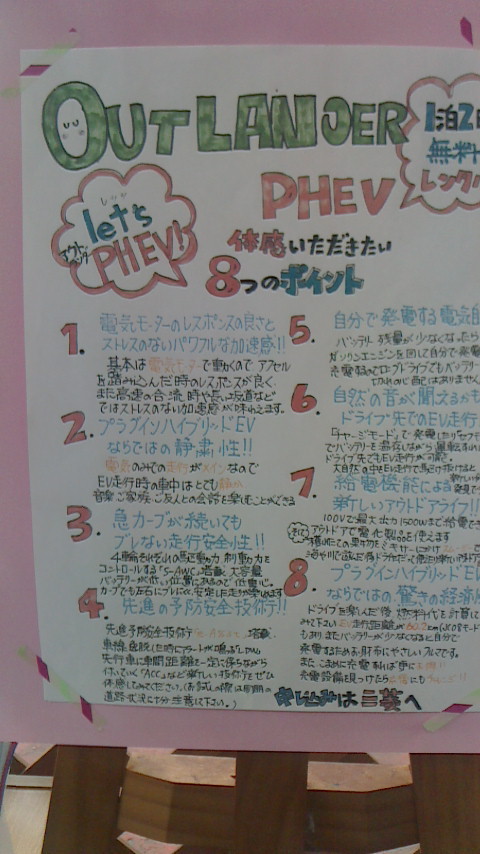 OUTLANDER
PHEV
1泊2日
無料
レンタル
let's
PHEV!
体感いただきたい
8つのポイント
1. 電気モーターのレスポンスの良さと
ストレスのないパワフルな加速感!!
基本は電気モーターで動くので アクセル
を踏み込んだ時のレスポンスが良く、
また高速の合流時や長い坂道など
ではストレスのない加速感が味わえます。
2. プラグインハイブリッドEV
ならではの静粛性!!
電気のみでの走行がメインなので
EV走行時の車中はとても静か
音楽、ご家族、ご友人との会話を楽しむことができる
3. 急カーブが続いても
ブレない走行安全性!!
4輪それぞれの駆動力、制動力を
コントロールする「S-AWC」搭載。大容量
バッテリーが低い位置にあるので低重心。
4. 先進の予防安全技術!!
先進予防安全技術 搭載。
先行車に車間距離を一定に保ちながら
付いていく「ACC」など新しい技術をぜひ
体感してみてください。(お試しの際は周囲の
道路状況に十分注意して下さい。)
5. 自分で発電する電気自
バッテリー残量が少なくなったら
ガソリンエンジンを回して自分で発電
6. 自然の音が聞こえるかも
ドライブ先でのEV走行
「チャージモード」で発電したり
ドライブ先でもEV走行が可能。
7. 給電機能による
新しいアウトドアライフ!!
100Vで最大出力1500Wまで給電でき
8. プラグインハイブリッドEV
ならではの驚きの経済
ドライブを楽しんだ後、燃料代を計算して
みて下さい EV走行距離が60.2km(JC08モード
もありまたバッテリーが少なくなると自分で
発電するためお財布にやさしいクルマです。
また、こまめに充電すれば更にお得!!
充電設備を見つけたら
申し込みは 営業へ